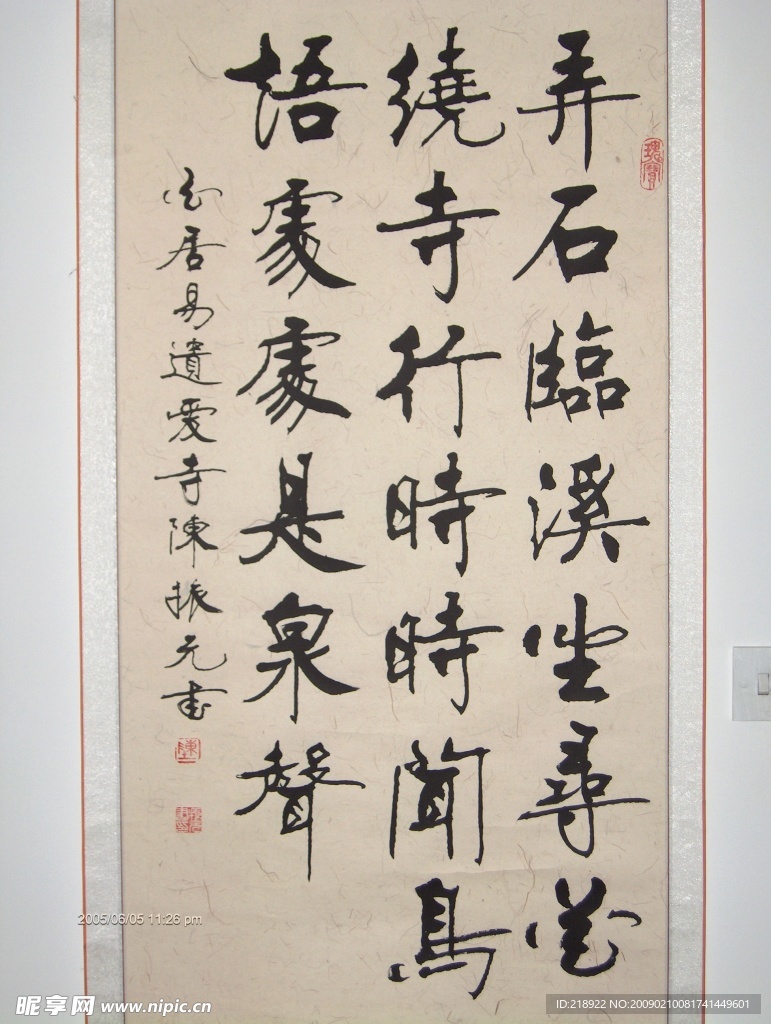 瑰寶
弄石臨溪坐尋花
繞寺行時時聞鳥
語處處是泉聲
白居易遺愛寺陳振元書
2005/06/05 11:26 pm
昵享网 www.nipic.cn
ID:218922 NO:20090210081741449601